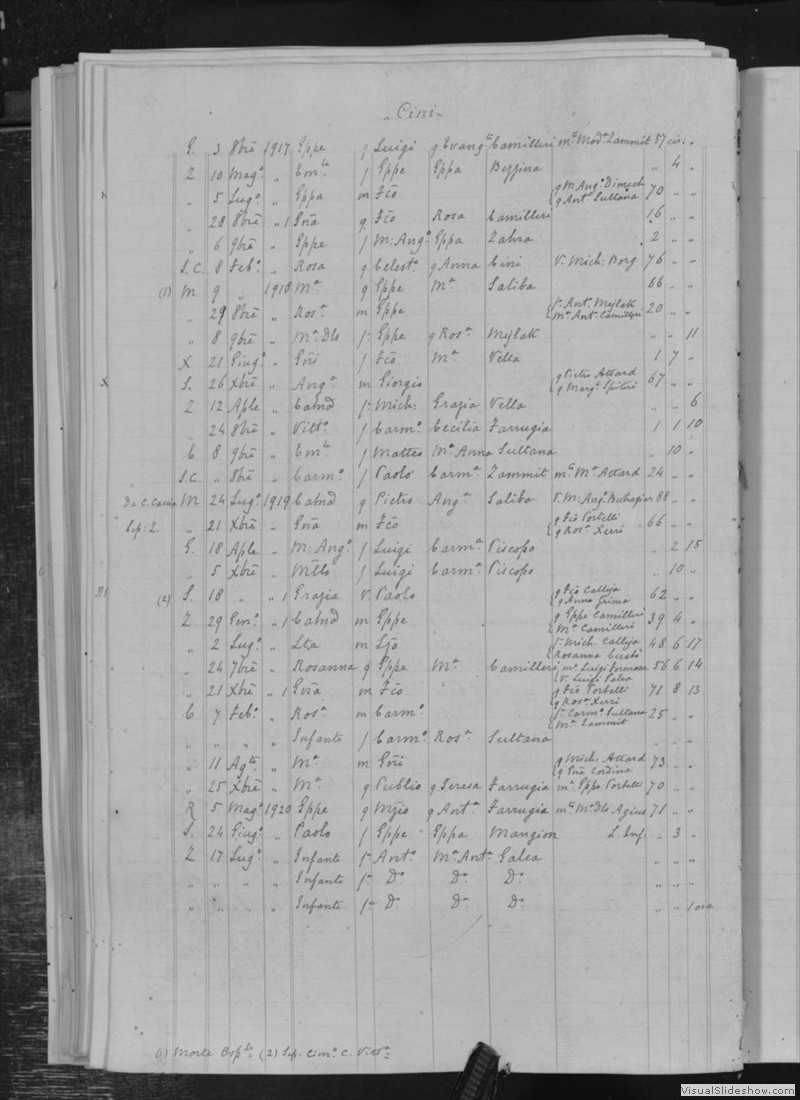 „ Cini „
G. 3 8bre 1917 Eppe f Luigi g Evang.a Camilleri m.a Mod.a Zammit 57 „
Z 10 Mag.o „ Em.le f Eppe Eppa Bezzina „ 4 „
„ 5 Lug.o „ Eppa m Fco { g M. Ang.o Dimech g Ant.a Sultana 70 „ „
„ 28 8bre „ 1 Gna g. Fco Rosa Camilleri 16 „ „
„ 6 9bre „ Eppe f M: Ang.o Eppa Zahra 2 „ „
S.C. 8 Feb.o „ Rosa g Celest.o g Anna Cini V. Mich: Borg 76 „ „
(1) M 9 „ 1918 M.a g Eppe M.a Saliba 66 „ „
„ 29 8bre „ Ros.a m Eppe { f. Ant. Mejlak m.a Ant.a Camilleri 20 „ „
„ 8 9bre „ M.a Dls f: Eppe g Ros.a Mejlak „ „ 11
X 21 Giug.o „ Gni f Fco M.a Vella 1 7 „
X S. 26 Xbre „ Ang.a m Giorgio { g Pietro Attard g Marg.a Spiteri 67 „ „
Z 12 Aple „ Catnd f: Mich: Grazia Vella „ „ 6
„ 24 8bre „ Vitt.a f Carm.o Cecilia Farrugia 1 1 10
C 8 9bre „ Em.le f Matteo M.a Anna Sultana „ 10 „
S.C. „ 8bre „ Carm.o f Paolo Carm.a Zammit m.a M.a Attard 24 „ „
Da C. M 24 Lug.o 1919 Catnd g Pietro Ang.a Saliba V. M: Ang.o Buhagiar 88 „ „
Sep: 2. „ 21 Xbre „ Gna m Fco { g Fco Portelli g Ros.a Xerri 66 „ „
G. 18 Aple „ M: Ang.o f Luigi Carm.a Piscopo „ 2 15
„ 5 Xbre „ f Luigi Carm.a Piscopo „ 10 „
(2) S. 18 „ „ 1 Grazia V. Paolo { g Fco Calleja g Anna Grima 62 „ „
Z 29 Gen.o „ 1 Catnd m Eppe { g Eppe Camilleri M.a Camilleri 39 4 „
„ 2 Lug.o „ Lta m { f: Mich. Calleja Rosanna 48 6 17
„ 24 7bre „ Rosanna g Eppe M.a Camilleri { m.a Luigi Formosa V. Luigi Galea 56 6 14
„ 21 Xbre „ 1 Gna m Fco { g Fco Portelli g Ros.a Xerri 71 8 13
C 7 Feb.o „ Ros.a m Carm.o { f: Carm.o Sultana M.a Zammit 25 „ „
„ „ „ „ Infante f Carm.o Ros.a Sultana „ „ „
„ 11 Ag.to „ M.a m Gni { g Mich. Attard g Gna Cordina 73 „ „
„ 25 Xbre „ M.a g Publio g Teresa Farrugia m.a Eppe Portelli 70 „ „
R 5 Mag.o 1920 Eppe g g Ant.a Farrugia m.a M.a Dls Agius 71 „ „
S. 24 Giug.o „ Paolo f Eppe Eppa Mangion L. Inf. „ 3 „
Z 17 Lug.o „ Infante f.a Ant.o M.a Ant.a Galea „ „ „
„ „ „ „ Infante f.a D.o D.o D.o „ „ „
„ „ „ „ Infante f.a D.o D.o D.o „ „ 1 ora
(1) Morta Osp.le (2) Sep. Cim.o C. Vitt.a
VisualSlideshow.com